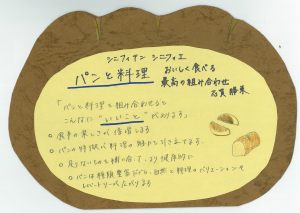 シニフィアン シニフィエ
パンと料理
おいしく食べる
最高の組み合わせ
志賀勝栄
「パンと料理を組み合わせると
こんなに "いいこと" があります」
○ 食事の楽しさが倍増する
○ パンの特徴が料理の魅力を引き立てます。
○ 足りないものを補い合って、より健康的に
○ パンは種類豊富だから、自然と料理のバリエーションや
レパートリーが広がります